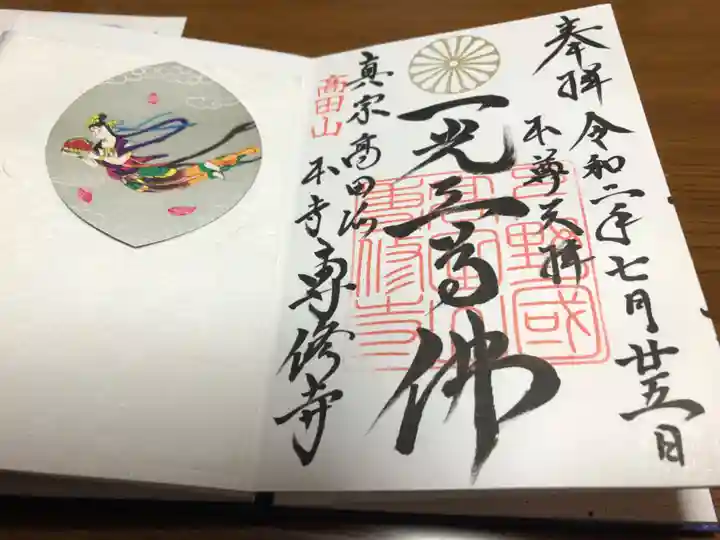 奉拝 令和二年七月廿五日
本尊天拝
一光三尊佛
高田山
真宗高田派
本寺専修寺
下野國
高田山
専修寺